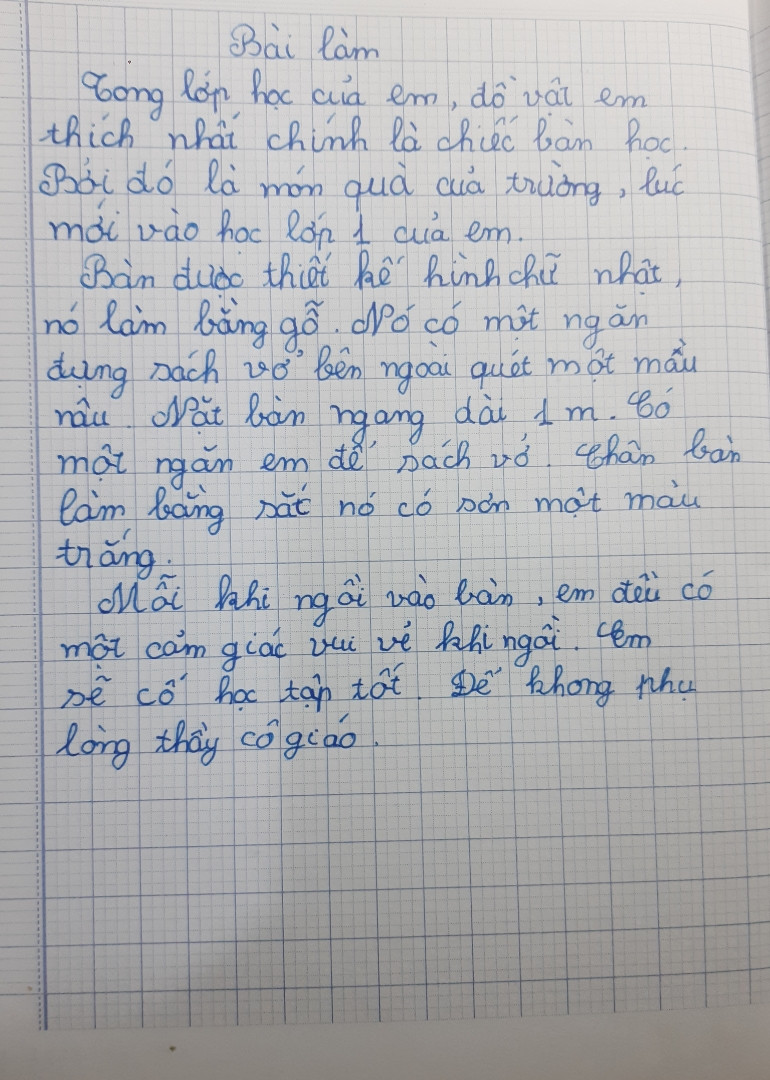 Bài làm
Tong lớp học của em, đồ vật em
thích nhất chính là chiếc bàn học.
Bởi đó là món quà của trường, lúc
mới vào học lớp 1 của em.
Bàn được thiết kế hình chữ nhật,
nó làm bằng gỗ. Nó có một ngăn
đựng sách vở bên ngoài quét một mầu
nâu. Mặt bàn ngang dài 1 m. Có
một ngăn em để sách vở. Chân bàn
làm bằng sắt nó có sơn một màu
trắng.
Mỗi khi ngồi vào bàn, em đều có
một cảm giác vui vẻ khi ngồi. Em
sẽ cố học tập tốt. Để không phụ
lòng thầy cô giáo.